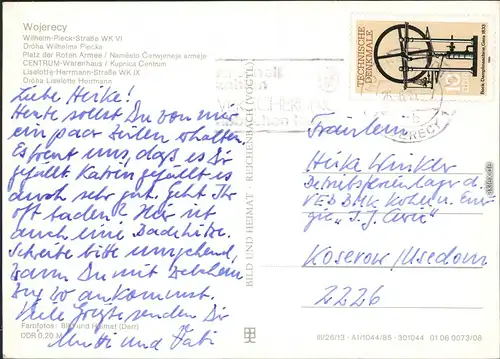 Wojerecy
Wilhelm-Pieck-Straße WK VI
Dróha Wilhelma Piecka
Platz der Roten Armee / Naměsto Čerwjeneje armeje
CENTRUM-Warenhaus / Kupnica Centrum
Liselotte-Herrmann-Straße WK IX
Dróha Liselotte Herrmann
Liebe Heike!
Heute sollst Du von mir
ein paar Zeilen erhalten.
Es freut uns, dass es Dir
gefällt. Katrin gefällt es
auch sehr gut. Geht Ihr
oft baden? Hier ist
auch eine Badehitze.
Schreibe bitte umgehend,
wann Du mit welchem
Zug wo ankommst.
Viele Grüße senden Dir
Mutti und Vati
Farbfotos: Bild und Heimat (Darr)
DDR 0,20 M
BILD UND HEIMAT · REICHENBACH (VOGTL)
TECHNISCHE DENKMALE
10
DDR
VERSICHERUNG
Fräulein
Heike Winkler
Betriebsferienlager d.
VEB BMK Kohle u. Ener-
gie
Koserow/Usedom
2226
III/26/13 · A1/1044/85 · 301044 01 06 0073/08